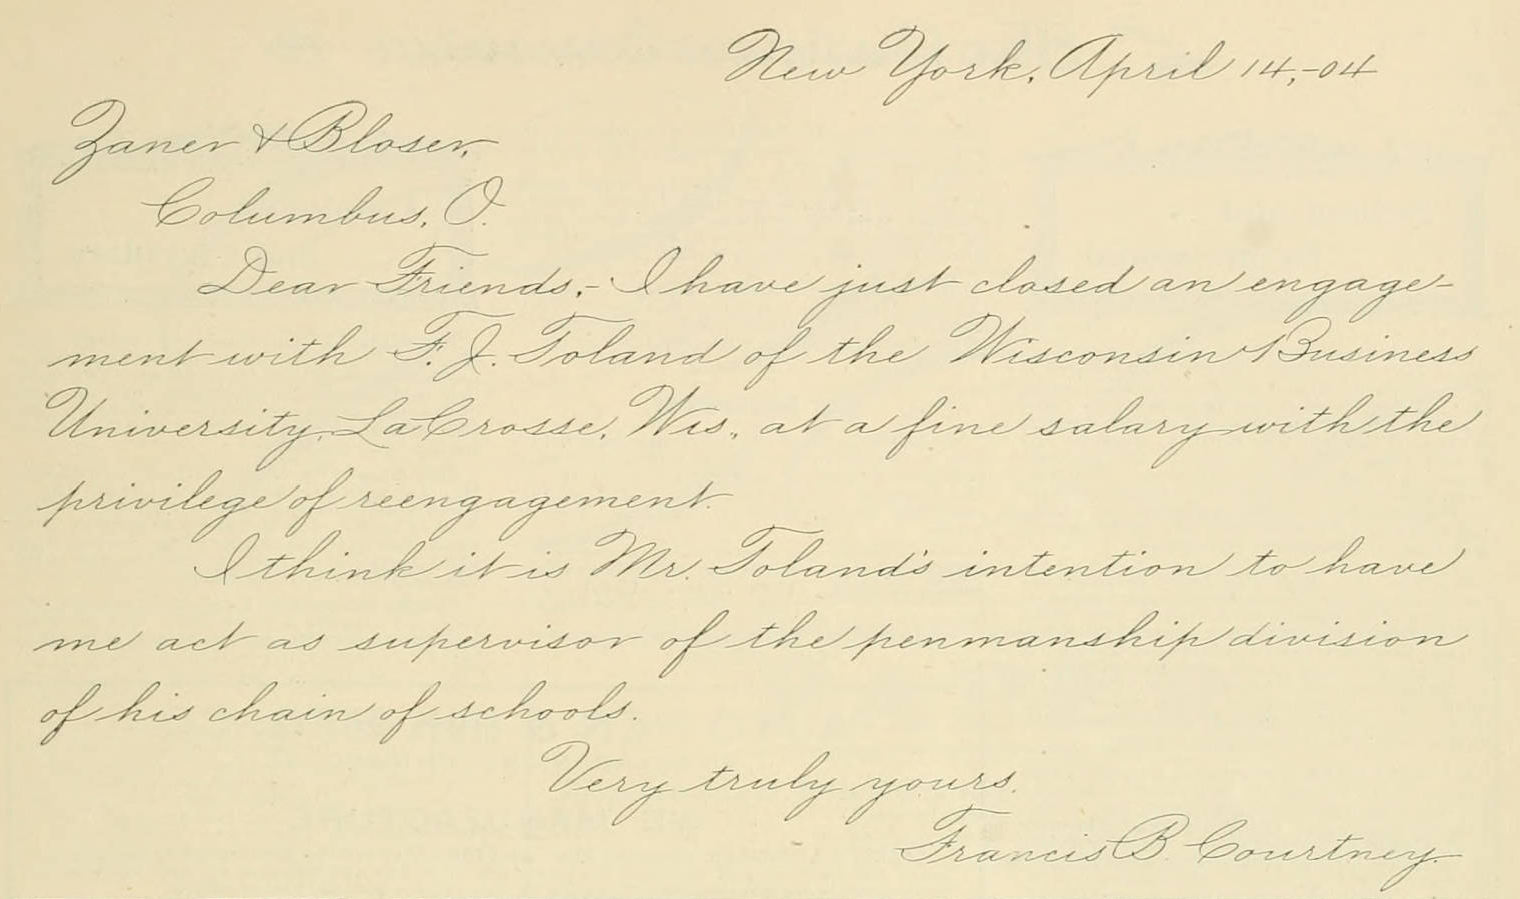 New York, April 14,-04
Zaner & Bloser,
Columbus, O.
Dear Friends,- I have just closed an engage-
ment with F. J. Toland of the Wisconsin Business
University, La Crosse, Wis., at a fine salary with the
privilege of reengagement.
I think it is Mr. Toland's intention to have
me act as supervisor of the penmanship division
of his chain of schools.
Very truly yours,
Francis B. Courtney.